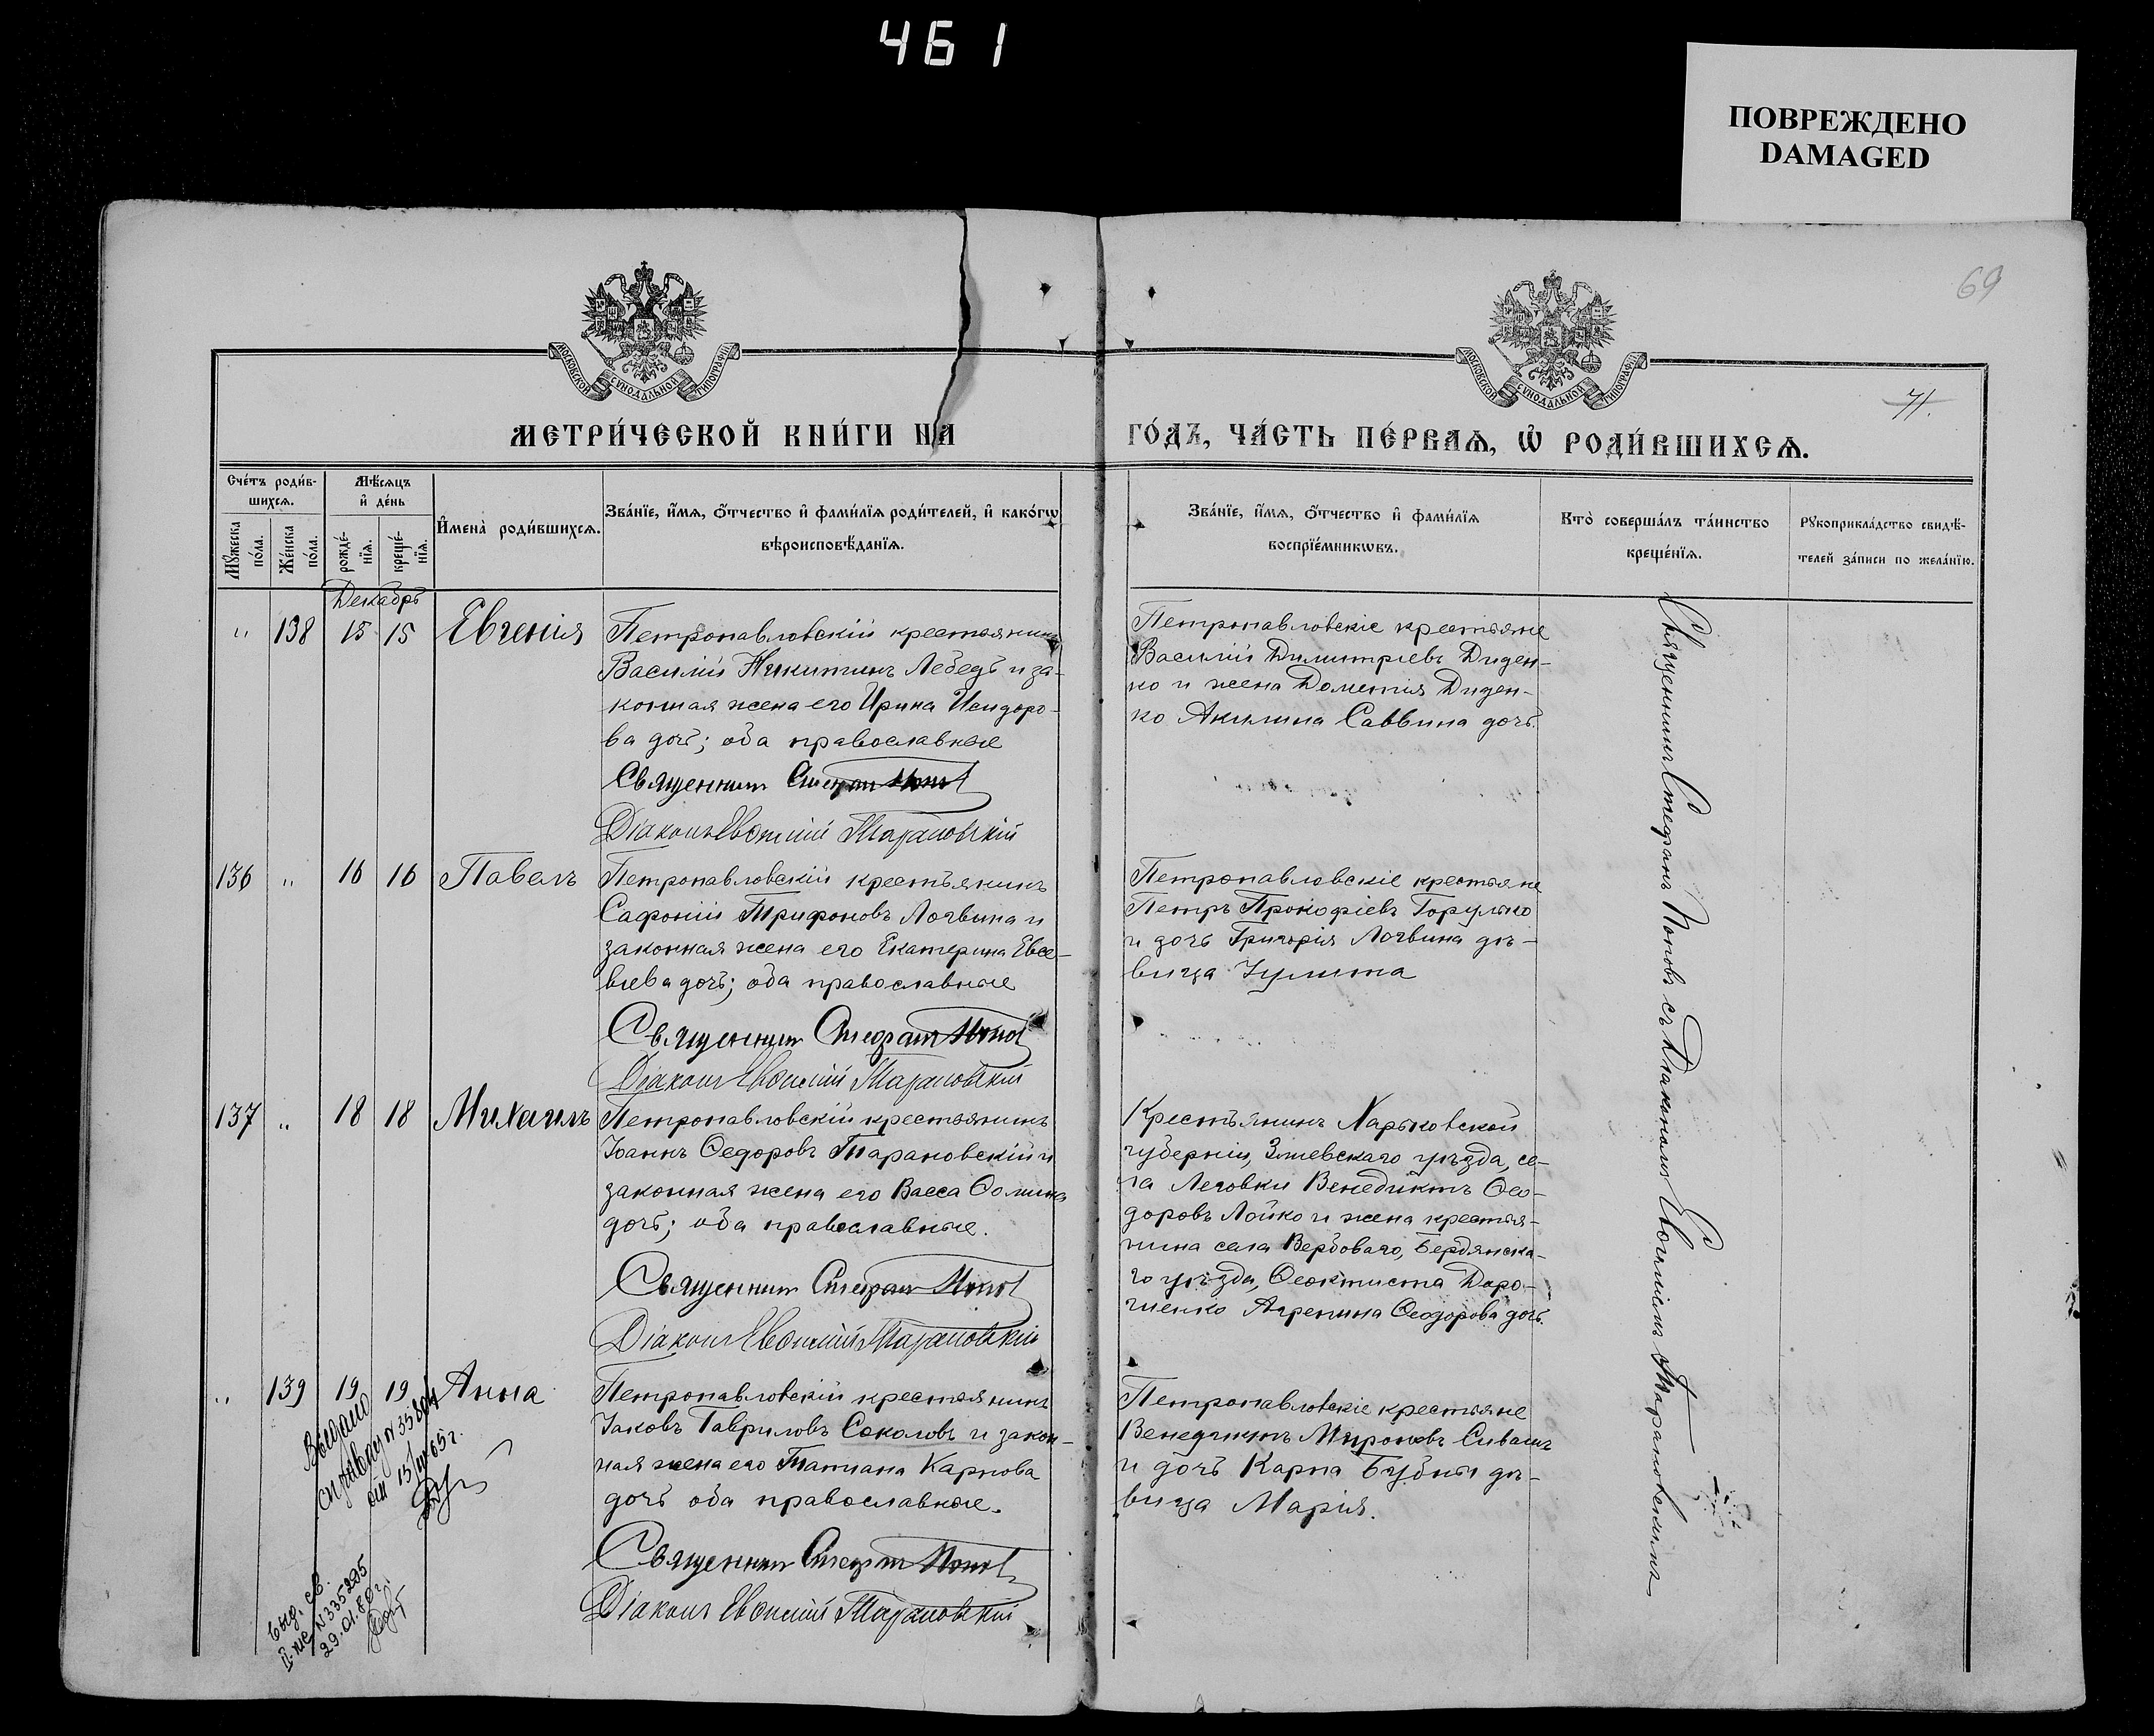 461
ПОВРЕЖДЕНО
DAMAGED
69
МОСКОВСКОЙ СѴНОДАЛЬНОЙ ТИПОГРАФІИ
МОСКОВСКОЙ СѴНОДАЛЬНОЙ ТИПОГРАФІИ
71.
МЕТРИ́ЧЕСКОЙ КНИ́ГИ НА
ГО́ДЪ, ЧА́СТЬ ПЕ́РВАѦ, Ѡ҆ РОДИ́ВШИХСѦ.
Сче́тъ роди́в-
шихсѧ.
Мꙋ́жеска
по́ла.
Же́нска
по́ла.
Мѣ́сѧцъ
и҆ де́нь
рожде́-
нїѧ.
креще́-
нїѧ.
И҆мена̀ роди́вшихсѧ.
Зва́нїе, и҆́мѧ, ѻ҆́тчество и҆ фами́лїѧ роди́телей, и҆ како́гѡ
вѣроисповѣ́данїѧ.
Зва́нїе, и҆́мѧ, ѻ҆́тчество и҆ фами́лїѧ
воспрїе́мникѡвъ.
Кто̀ соверша́лъ та́инство
креще́нїѧ.
Рꙋкоприкла́дство свидѣ́-
телей за́писи по жела́нїю.
Декабрь
" 138 15 15 Евгенія
Петропавловскій крестьянинъ
Василій Никитинъ Лебедь и за-
конная жена его Ирина Исидоро-
ва дочь; оба православные
Священникъ Стефанъ Поповъ
Діаконъ Евѳимій Тарановскій
Петропавловскіе крестьяне
Василій Димитріевъ Диден-
ко и жена Дометія Диден-
ко Акилина Саввина дочь.
136 " 16 16 Павелъ
Петропавловскій крестьянинъ
Сафоній Трифоновъ Логвина и
законная жена его Екатерина Евсе-
віева дочь; оба православные
Священникъ Стефанъ Поповъ
Діаконъ Евѳимій Тарановскій
Петропавловскіе крестьяне
Петръ Прокофіевъ Горулько
и дочь Григорія Логвина дѣ-
вица Іулитта
137 " 18 18 Михаилъ
Петропавловскій крестьянинъ
Іоаннъ Ѳедоровъ Тарановскій и
законная жена его Васса Ѳомина
дочь; оба православные.
Священникъ Стефанъ Поповъ
Діаконъ Евѳимій Тарановскій
Крестьянинъ Харьковской
губерніи, Зміевскаго уѣзда, се-
ла Леговки Венедиктъ Ѳео-
доровъ Лойко и жена крестья-
нина села Вербоваго, Бердянска-
го уѣзда, Ѳеоктиста Доро-
шенко Агрепина Ѳеодорова дочь.
" 139 19 19 Анна
Петропавловскій крестьянинъ
Іаковъ Гавриловъ Соколовъ и закон-
ная жена его Татіана Карпова
дочь оба православные.
Священникъ Стефанъ Поповъ
Діаконъ Евѳимій Тарановскій
Петропавловскіе крестьяне
Венедиктъ Мироновъ Сивашъ
и дочь Карпа Бубны дѣ-
вица Марія.
Священникъ Стефанъ Поповъ съ Діакономъ Евѳиміемъ Тарановскимъ
Выдано
справку №
65г.
выд. св.
II-ЖС №335295
29.01.80г.